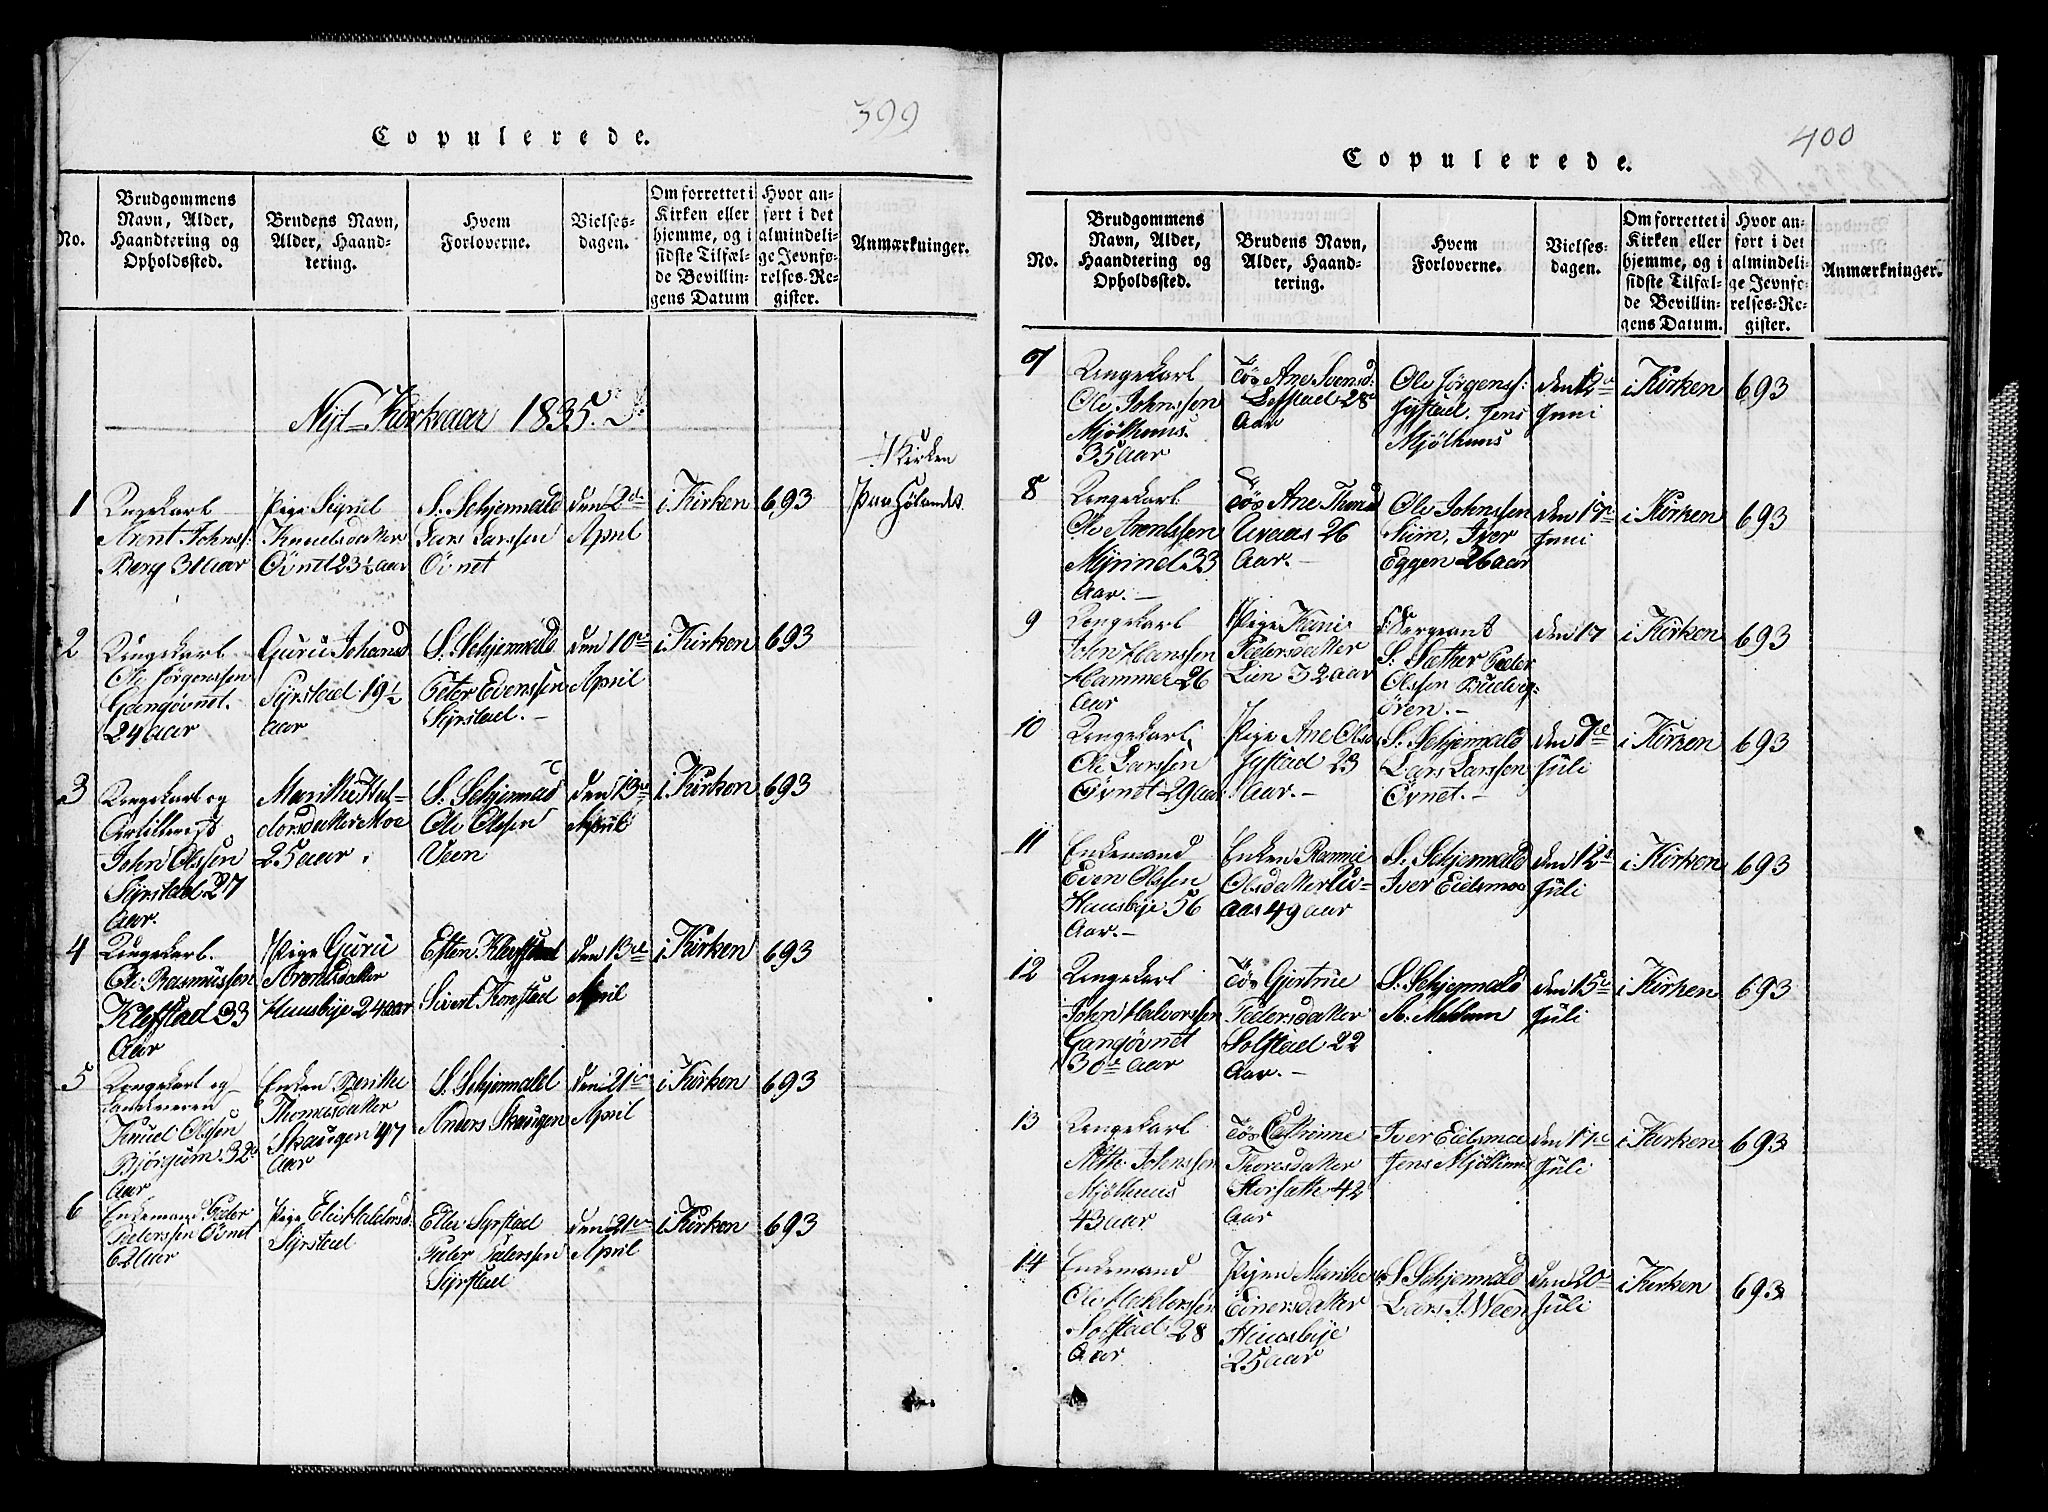 399
Copulerede.
No.
Brudgommens Navn, Alder, Haandtering og Opholdssted.
Brudens Navn, Alder, Haandtering.
Hvem Forloverne.
Vielsesdagen.
Om forrettet i Kirken eller hjemme, og i sidste Tilfælde Bevillingens Datum
Hvor anført i det almindelige Jevnførelses-Register.
Anmærkninger.
Nyt Kirkeaar 1835.
1
Arent Johnss:
Berg 31 aar
Pige Sigrid
Knudsdatter
Övnet 23½ aar
S. Schjenvald
Lars Larssen
Övnet
den 2den
April
i Kirken
693
Kirken
paa Hölandet
2
Ungekarl
Ole Jörgenssen
Gangövnet.
24 aar
Guru Johansd
Syrstad 19½
aar
S. Schjenvald
Peter Evenssen
Syrstad.
den 10de
April
i Kirken
693
3
Ungekarl og
Artillerist
John Olssen
Syrstad 27
Aar.
Marithe Hal-
dorsdatter Moe
25 aar.
S. Schjenvald
Ole Olssen
Veen
den 13de
April
i Kirken
693
4
Ungekarl.
Ole Rasmussen
Klefstad 33
Aar
Pige Guru
Arentsdatter
Huusbye 24 aar
Esten Klefstad
Sivert Komstad
den 13de
April
i Kirken
693
5
Ungekarl og
Knud Olssen
Björgum 32
Aar
Enken Berithe
Thomasdatter
Skaugen 47
Aar
S. Schjenvald
Anders Skaugen
den 21de
April
i Kirken
693
6
Enkemand Peder
Pederssen Övnet
62 aar
Pige Eli Haldorsd.
Syrstad
Ellev Syrstad
Peder Pederssen
Syrstad
den 21de
April
i Kirken
693
400
Copulerede.
No.
Brudgommens Navn, Alder, Haandtering og Opholdssted.
Brudens Navn, Alder, Haandtering.
Hvem Forloverne.
Vielsesdagen.
Om forrettet i Kirken eller hjemme, og i sidste Tilfælde Bevillingens Datum.
Hvor anført i det almindelige Jevnførelses-Register.
Anmærkninger.
7
Ungekarl
Ole Johnssen
Mjölhuus.
35 aar
Tös Ane Svensd.
28
Aar
Ole Jörgenss:
Jystad. Jens
Mjölhuus
den 12te
Juni
i Kirken
693
8
Ungekarl
Ole Arentssen
Myrind 33
Aar.
Tös Ane
Uvaas 26
Aar.
Ole Johnssen
Iver
Eggen 26 aar
den 17de
Juni
i Kirken
693
9
Ungekarl
John Hanssen
Hammer 26
Aar
Pige Kari
Pedersdatter
Lien 32 aar
Sergeant
S. Sæther Peder
Olssen
ören.
den 17
i Kirken
693
10
Ungekarl
Ole Larssen
Övnet 29 aar
Pige Ane Olsd.
Jystad 23
Aar.
S. Schjenvald
Lars Larssen
Övnet.
den 7de
Juli
i Kirken
693
11
Enkemand
Even Olssen
Huusbye 56
Aar.
Enken
Olsdatter Uv-
aas 49 aar
S. Schjenvald
Iver Eidsmoe
den 12te
Juli
i Kirken
693
12
Ungekarl
John Halvorssen
Gangövnet
30 aar
Tös Gjertrue
Pedersdatter
Solstad 22
Aar.
S. Schjenvald
den 15de
Juli
i Kirken
693
13
Ungekarl
Johnssen
Mjölhuus
43 aar
Tös
Thoresdatter
42
Aar
Iver Eidsmoe
Jens Mjölhuus
den 17de
Juli
i Kirken
693
14
Enkemand
Ole Haldorssen
Solstad 28
Aar
Pigen Marithe
Einersdatter
Huusbye
25 aar
S. Schjenvald
Lars J. Ween
den 20de
Juli
i Kirken
693